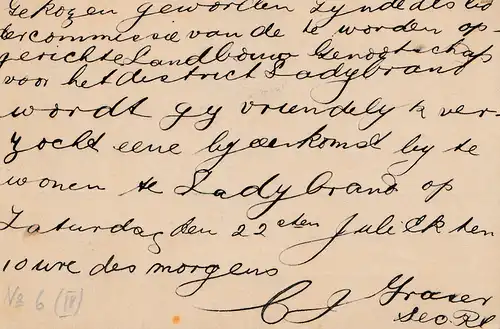 Gekozen geworden zynde als lid
der commissie van de te worden op-
gerichte Landbouw Genootschap
voor het district Ladybrand
wordt gy vriendelyk ver-
zocht eene byeenkomst by te
wonen te Ladybrand op
Zaturdag den 22sten Juli Elk ten
10 ure des morgens
C J Fraser
Va 6 (IV)